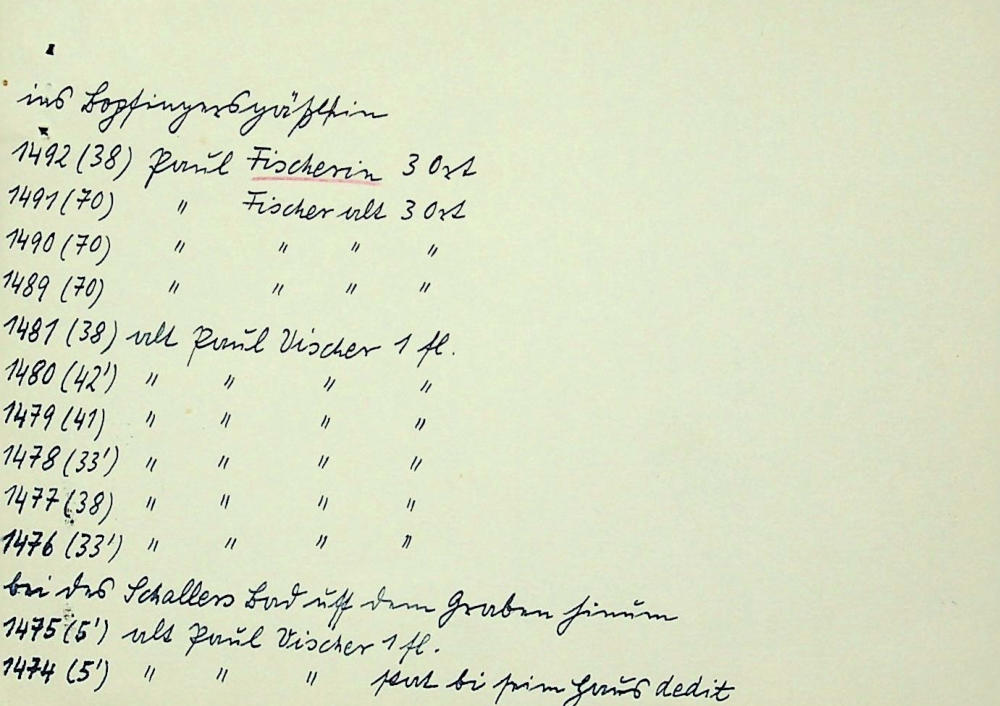 ins Bopfingersgäßlein
1492 (38) Paul Fischerin 3 Ort
1491 (70) " Fischer alt 3 Ort
1490 (70) " " " "
1489 (70) " " " "
1481 (38) alt Paul Vischer 1 fl.
1480 (42') " " " "
1479 (41) " " " "
1478 (33') " " " "
1477 (38) " " " "
1476 (33') " " " "
bei des Schallers Bad uff dem Graben hinum
1475 (5') alt Paul Vischer 1 fl.
1474 (5') " " " stat bi seim Haus dedit